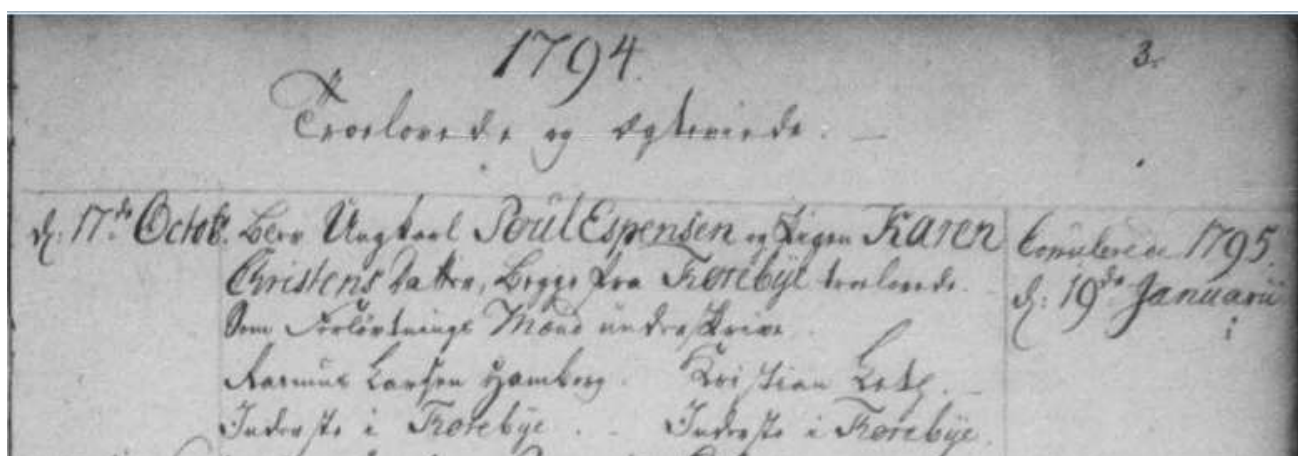 1794. 3.
Troelovede og Ægteviede. –
d: 17de Octob. blev Ungkarl Poul Espensen og Pigen Karen
Christens Datter, begge fra Torebÿe troelovede.
Som Forlovnings Mænd underskrive
Rasmus Larsen Hamborg. Kristian
Inderste i Torebÿe. – Inderste i Torebÿe.
Copulerede 1795.
d: 19de Januarii